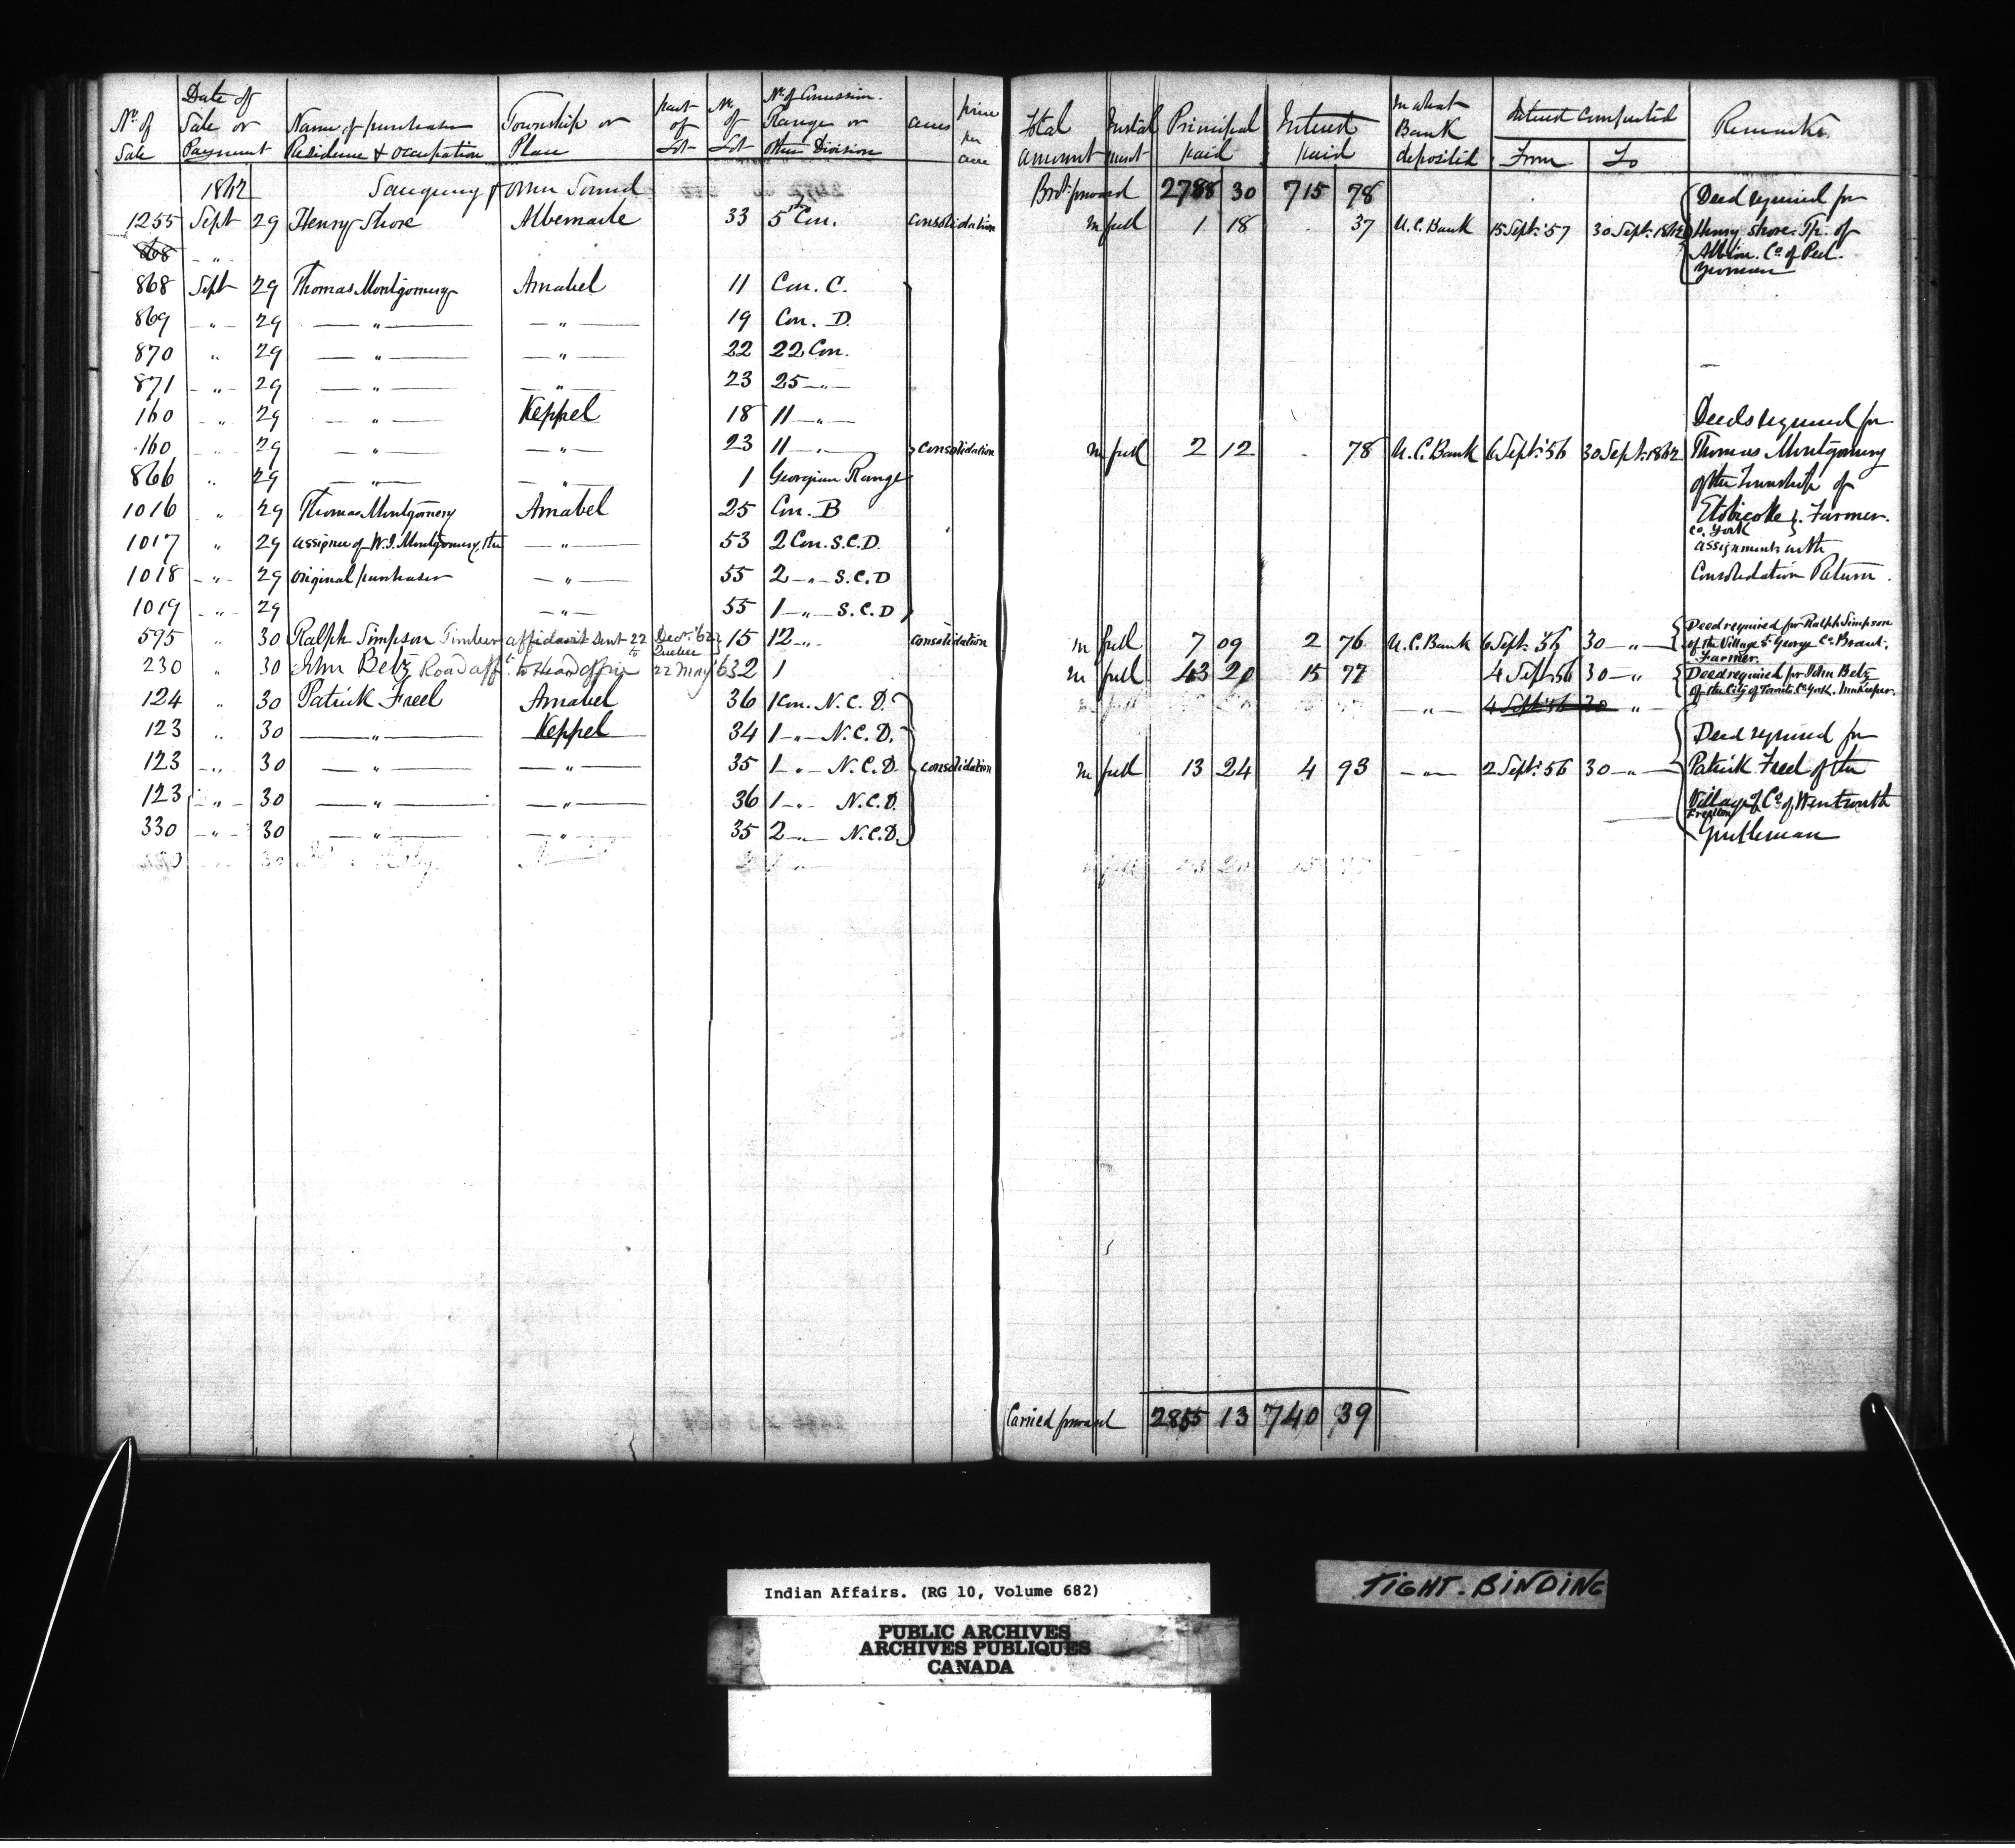 No. of Sale | Date of Sale or Payment | Name of purchaser Residence & occupation | Township or Place | part of Lot | No. of Lot | No. of Concession Range or other Division | acres | price per acre | Total amount | Instalment | Principal paid | Interest paid | In what Bank deposited | Interest Computed From | To | Remarks
1862 Saugeeng & Owen Sound Brot. forward 2788 30 715 78
1255 Sept 29 Henry Shore Albemarle 33 5th Con. Consolidation In full 1 18 37 U.C. Bank 15 Sept. '57 30 Sept. 1862 Deed required for Henry Shore. Tp. of Albion. Co. of Peel. Yeoman
868 "
868 Sept 29 Thomas Montgomery Amabel 11 Con. C.
869 " 29 " " 19 Con. D.
870 " 29 " " 22 22 Con.
871 " 29 " " 23 25 "
160 " 29 " Keppel 18 11 "
160 " 29 " " 23 11 " Consolidation In full 2 12 78 U.C. Bank 6 Sept. 56 30 Sept. 1862 Deeds required for Thomas Montgomery of the Township of Etobicoke Co. York Farmer. assignments with Consolidation Return.
866 " 29 " " 1 Georgian Range
1016 " 29 Thomas Montgomery Amabel 25 Con. B
1017 " 29 assignee of W.J. Montgomery, the " 53 2 Con. S.C.D.
1018 " 29 original purchaser " 55 2 " S.C.D
1019 " 29 " 55 1 " S.C.D
595 " 30 Ralph Simpson Timber affidavit sent 22 Decr. '62 to Quebec 15 12 " Consolidation In full 7 09 2 76 U.C. Bank 6 Sept. '56 30 " Deed required for Ralph Simpson of the Village St. George Co. Brant. Farmer.
230 " 30 John Betz Road afft. to Head Office 22 May '63 2 1 In full 43 20 15 77 4 Sept 56 30 " Deed required for John Betz of the City of Toronto, Co. York. Innkeeper.
124 " 30 Patrick Freel Amabel 36 1 Con. N.C.D. " 4 Sept. 56 30 "
123 " 30 " Keppel 34 1 " N.C.D.
123 " 30 " " 35 1 " N.C.D. Consolidation In full 13 24 4 93 " 2 Sept. 56 30 " Deed required for Patrick Freel of the Village of Freelton Co. of Wentworth Gentleman
123 " 30 " " 36 1 " N.C.D.
330 " 30 " " 35 2 " N.C.D.
Carried forward 2855 13 740 39
Indian Affairs. (RG 10, Volume 682)
PUBLIC ARCHIVES
ARCHIVES PUBLIQUES
CANADA
TIGHT-BINDING